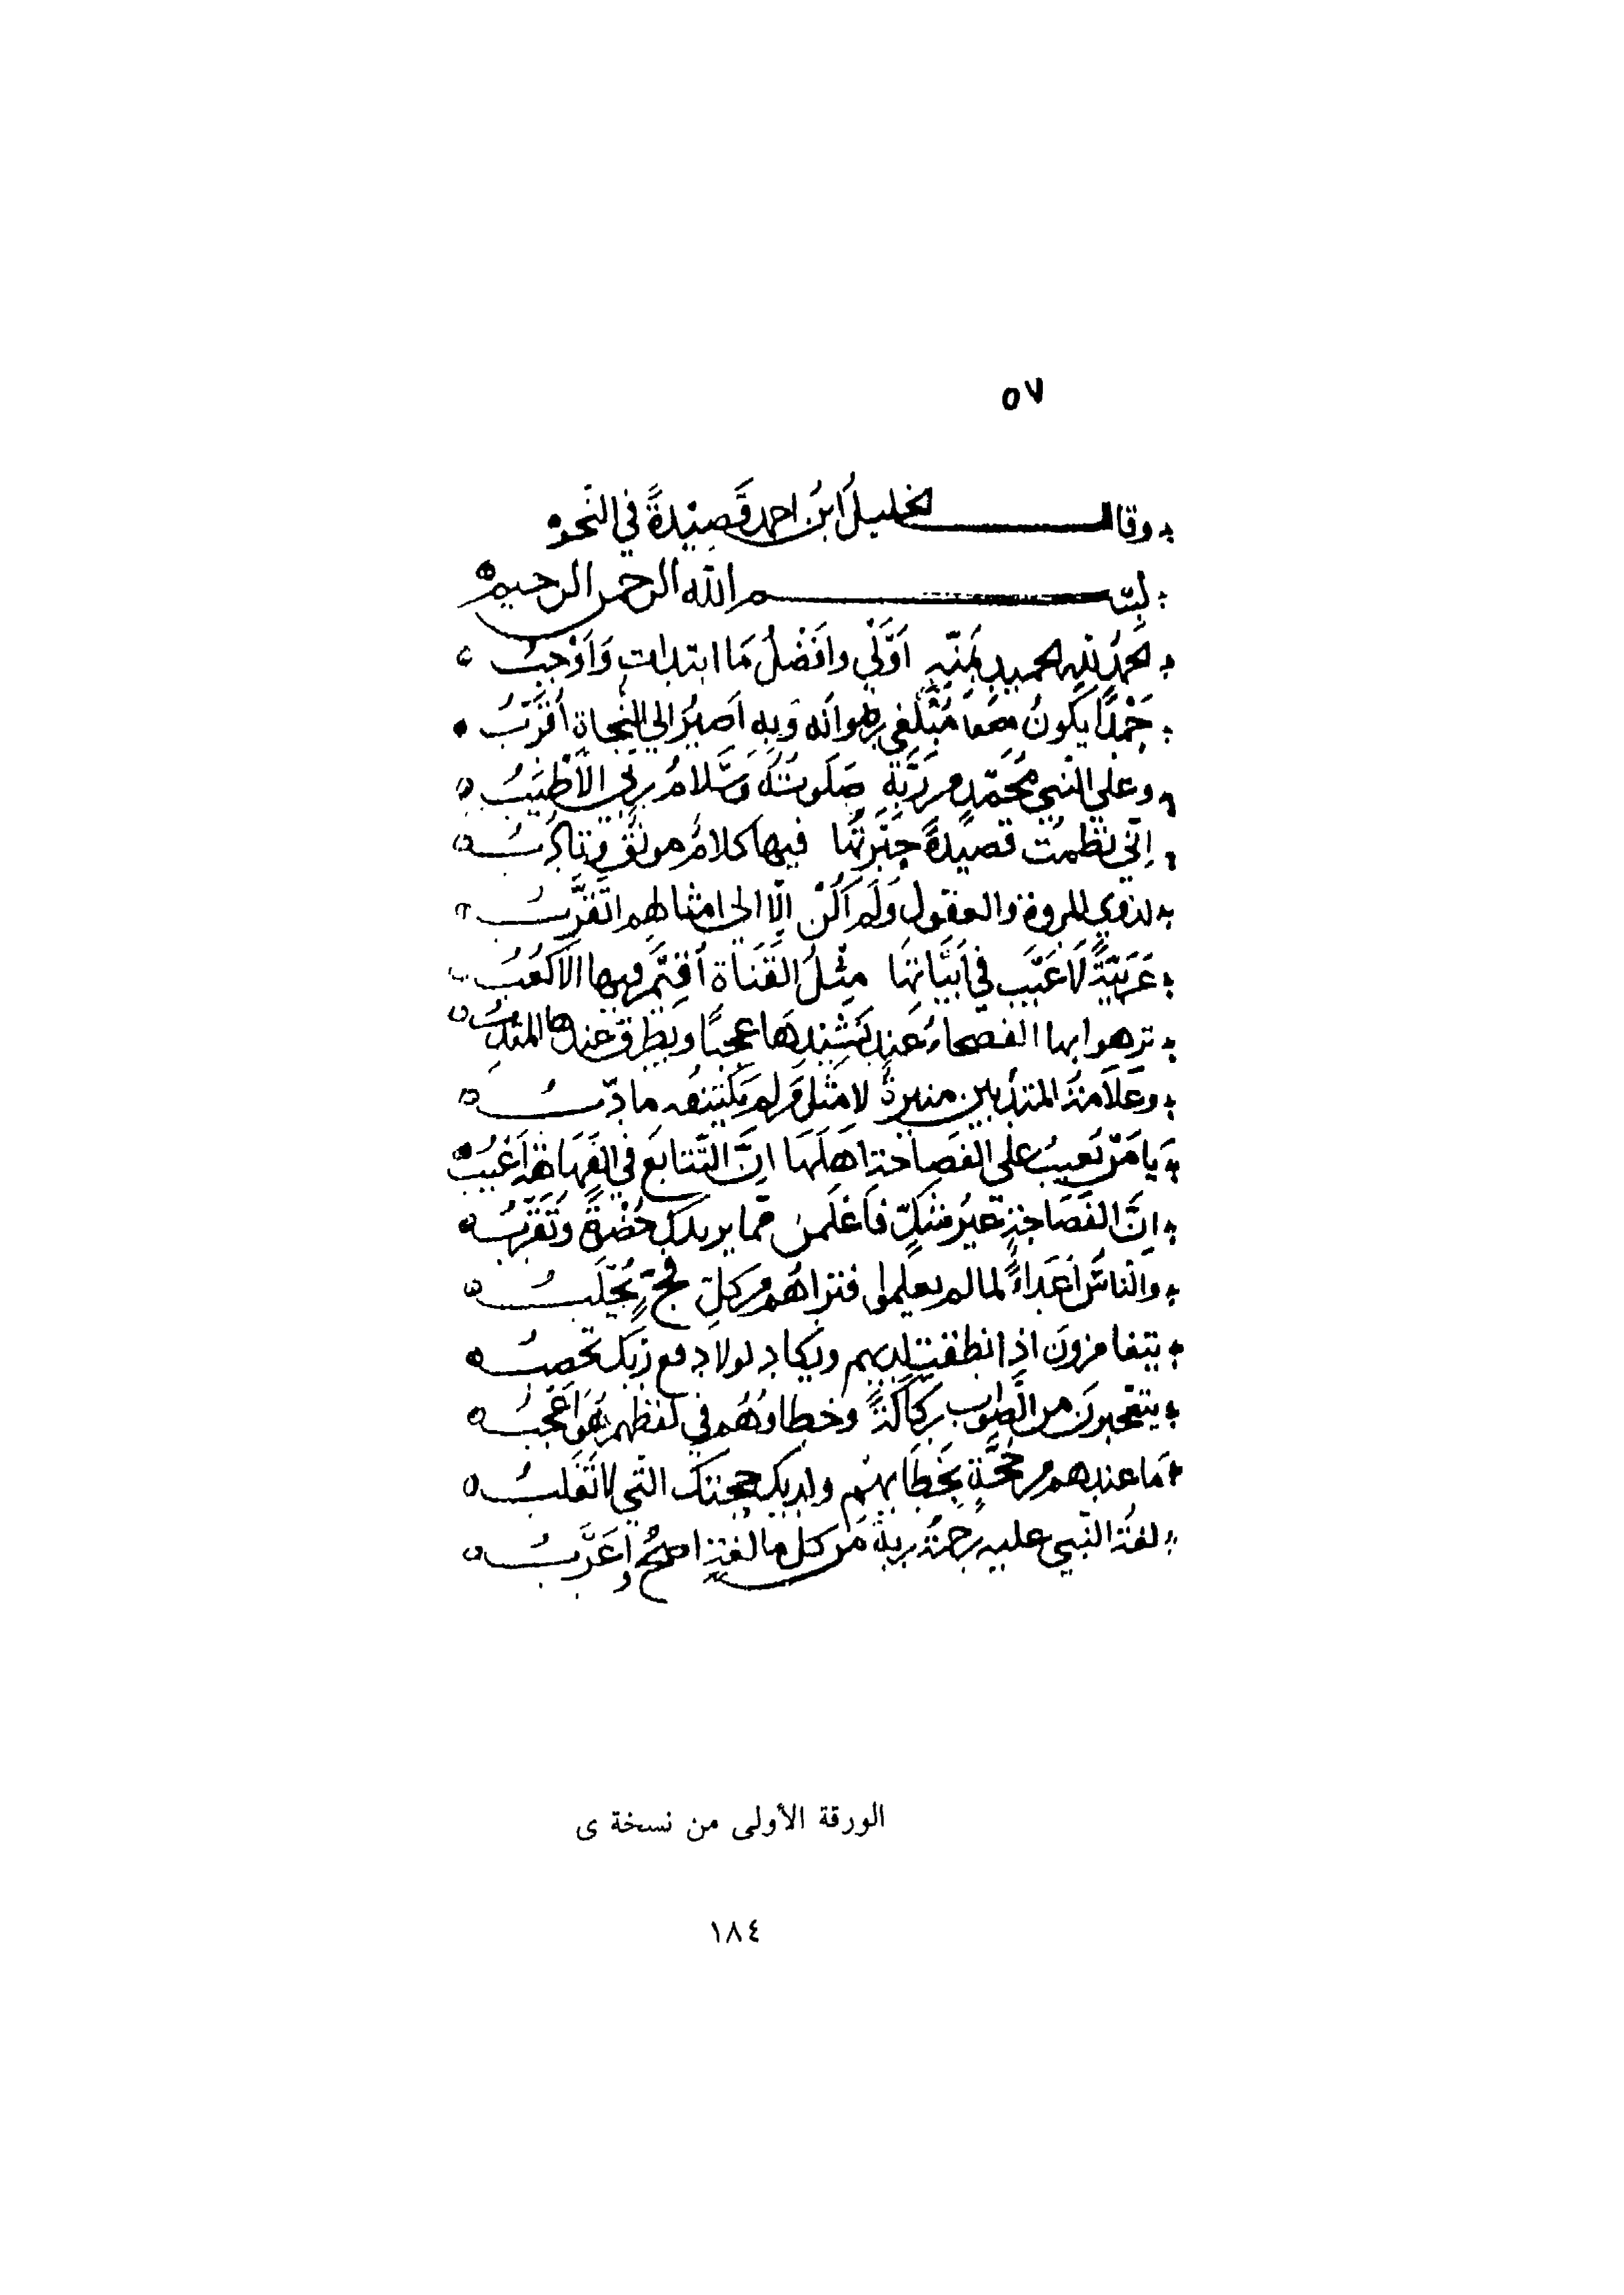 ٥٧
وقال الخليل ابن احمد قَصِيْدَةً في النَّحو
بسم الله الرحمن الرحيم
الحمدُ للهِ الحميدِ بمَنِّهِ أَوْلَى وَأَفْضَلُ مَا ابتدات وَأَوْجَبُ
حَمْدًا يكونُ مُبَلِّغي رضوانَه وَبِهِ أَصيرُ الي النَّجاةِ أُقَرَّبُ
وعلي النَّبيِ مُحَمّدٍ من ربِّهِ صَلَوتُهُ وَسَلامُ ربّي الأَطْيَبُ
إنّي نظمْتُ قصيدةً حبّرتُها فيها كلامٌ مونقٌ وتأدّبُ
لذوي المروة والعقول ولَم أَكُنْ إلّا الي امثالهم اتقرَّبُ
عَرَبيَّةً لا عَيْبَ في أَبْيَاتِهَا مِثْلُ القَنَاةِ أُقِيمَ فيها الأكْعُبُ
تزهوا بها الفصحاءُ عندَ نشيدِهَا عجبًا ويطرق عندها المتادبُ
يا مَنْ يعيبُ علي الفَصَاحةِ اهلَهَا إنَّ التَّتابعَ في الفَهَاهَةِ أَعْيَبُ
إنَّ الفَصَاحةَ غيرُ شكٍّ فاعْلَمَنْ مما يريدك حُضْوَةً وتُقَرِّبُ
والنّاسُ أعداءٌ لما لم يعلموا فتراهُم من كلِّ فجٍّ يُجْلَبُ
يتغامزون اذا نطقت لديهم ويكاد لولا دفع ربّك تحصبُ
يتعجبون من الصّواب ركاكةً وخطاوهُم في لفظهم هُوَ أَعْجَبُ
ما عندهم من حُجَّةٍ بِخَطَابهم ولديك حجتك التي لا تُغْلَبُ
لغةُ النّبي عليه رحمةُ ربّهِ من كلّ ما لغةٍ اصحُّ وأعرَبُ
الورقة الأولى من نسخة ى
١٨٤